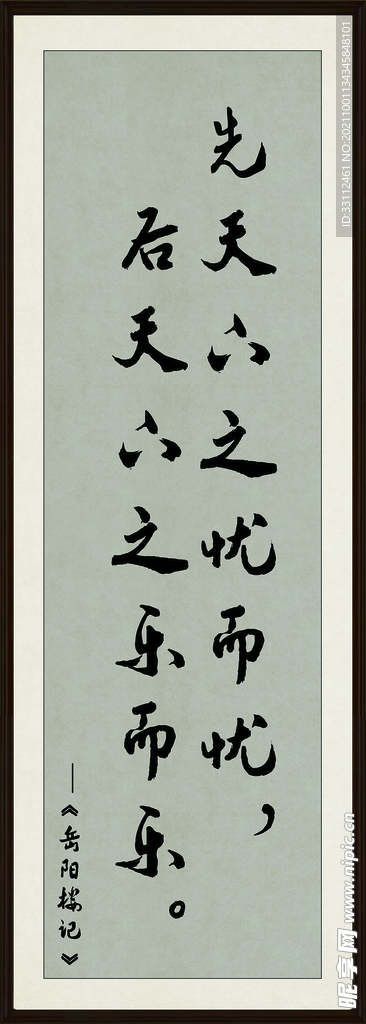 先天下之忧而忧，
后天下之乐而乐。
——《岳阳楼记》
ID:33112461 NO:20211001134345848101
昵享网 www.nipic.cn